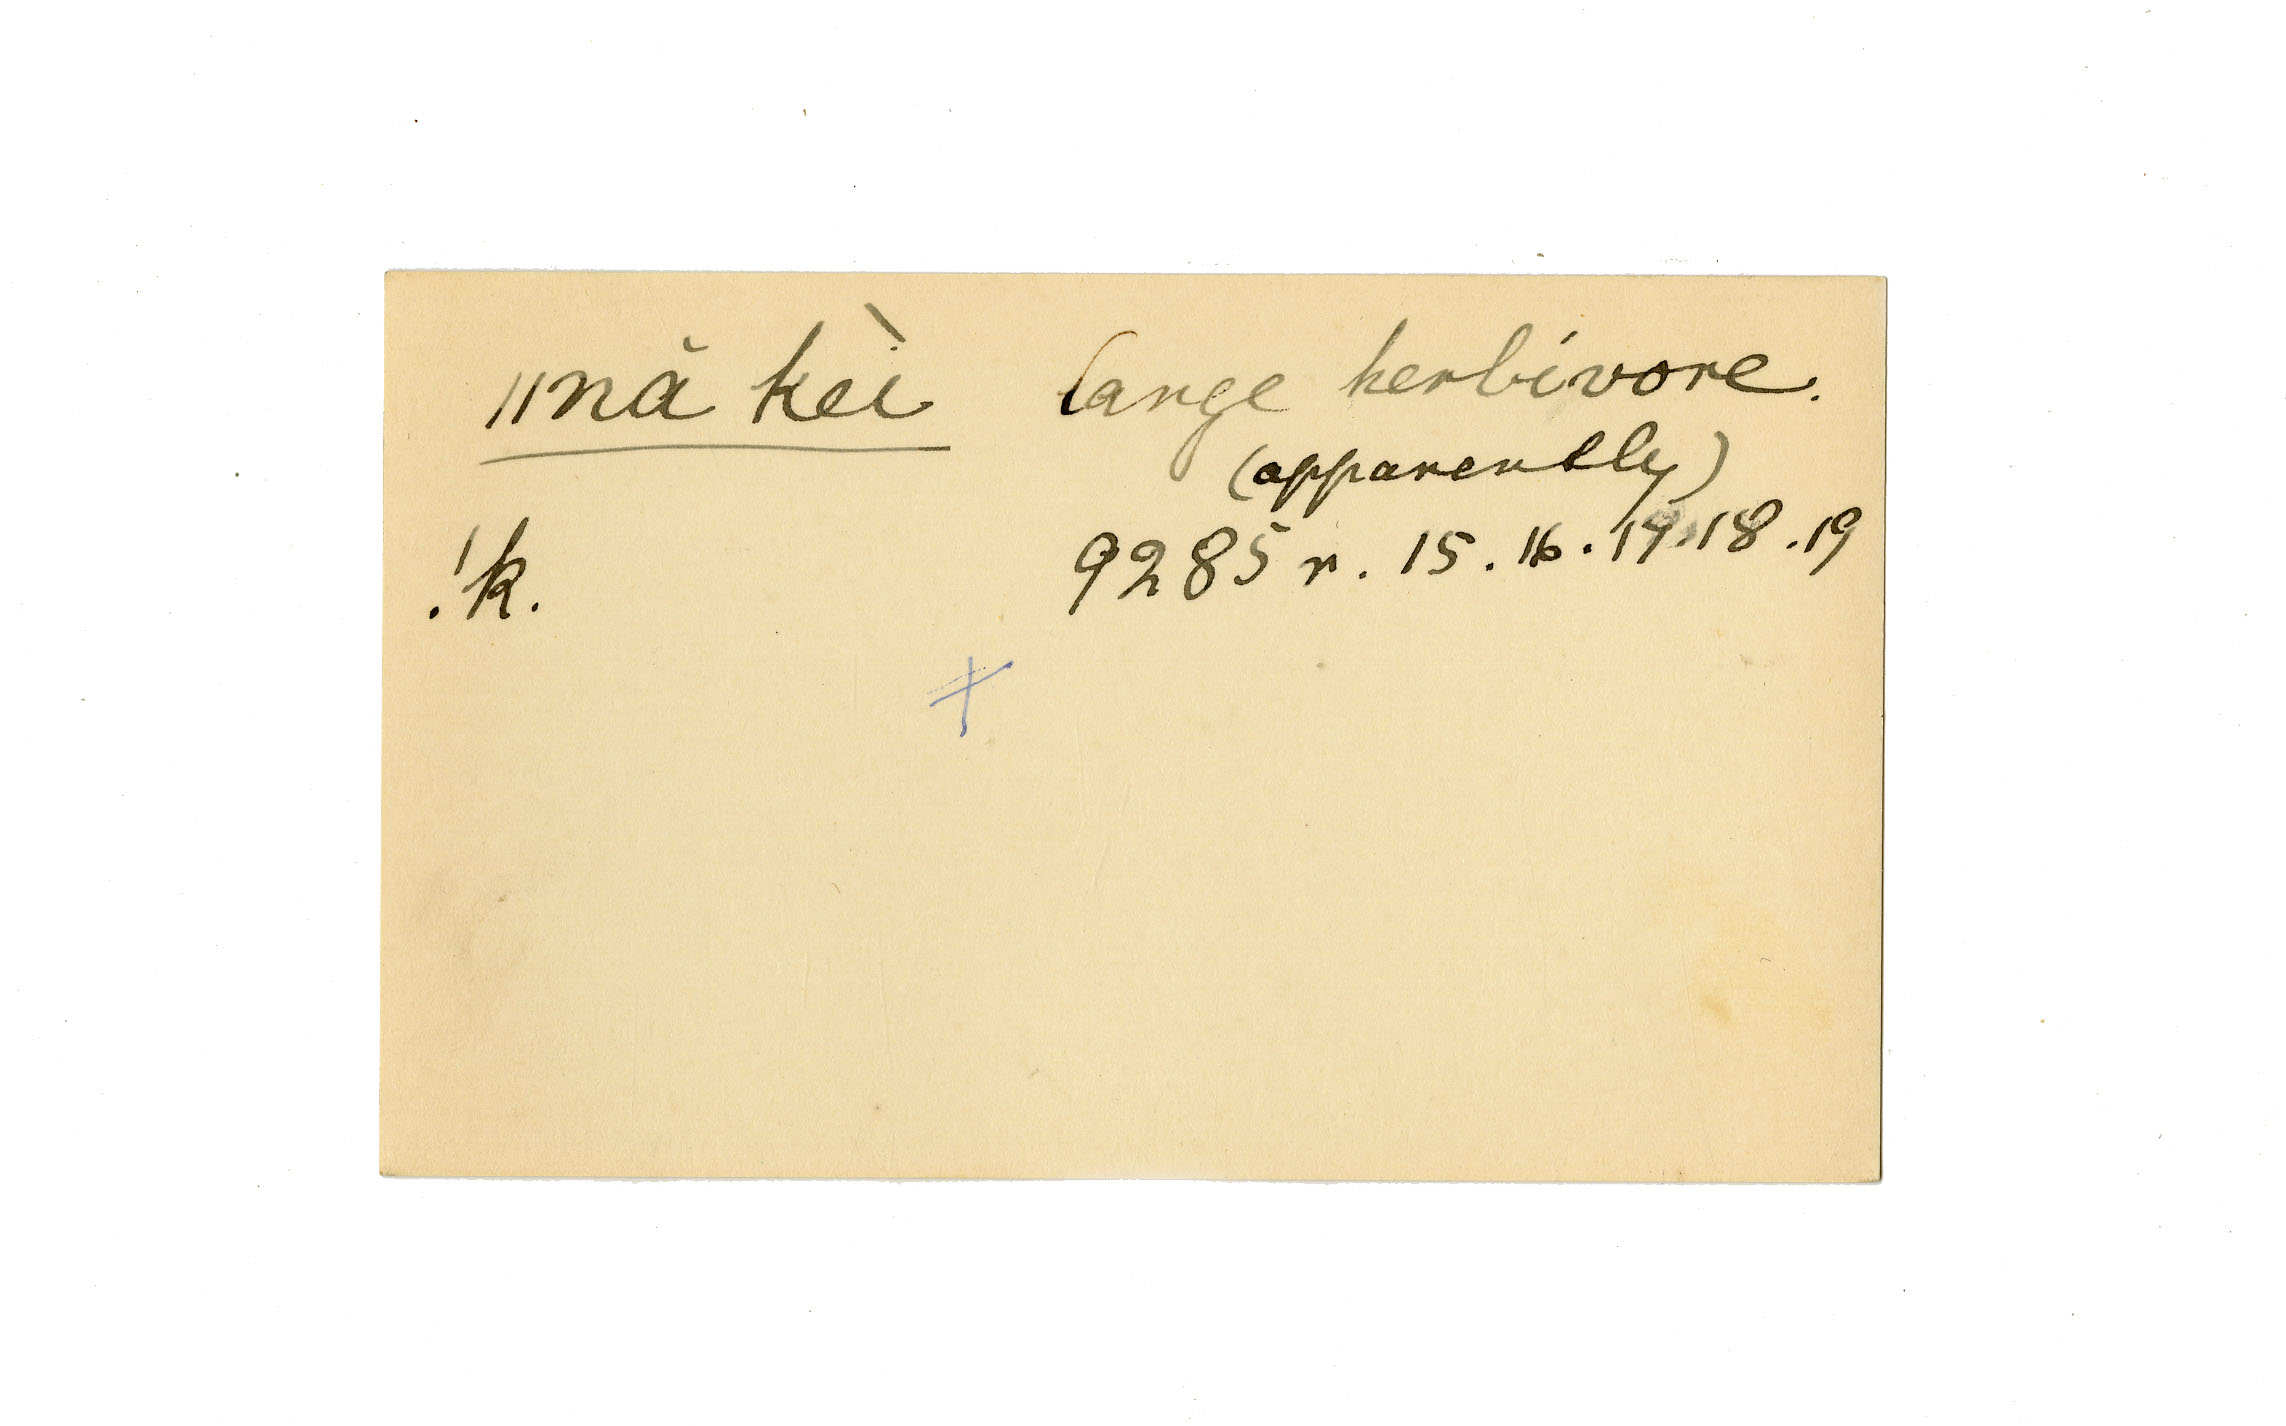 ǁnă kèi large herbivore.
(apparently)
!k. 9285 r. 15. 16. 17. 18. 19